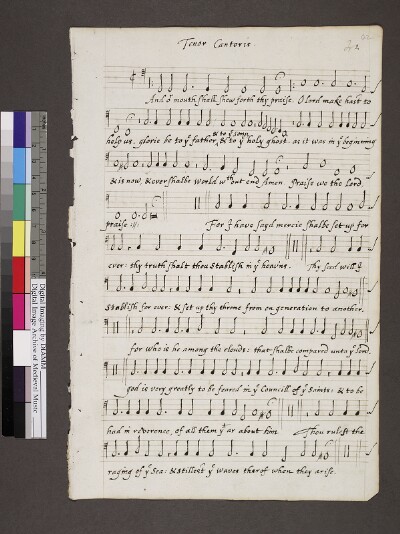 Tenor Cantoris
And o mouth shall shew forth thy praise. O lord make hast to
& to ye sonn,
help us. glorie be to ye father, & to ye holy ghost. as it was in ye beginning
& is now, & ever shalbe world wthout end Amen Praise we the Lord
praise :y: For I have sayd mercie shalbe set up for
ever: thy truth shalt thou stablish in ye heavens. Thy seed will I
stablish for ever: & set up thy throne from on generation to another.
for who is he among the clouds: that shalbe compared unto ye Lord
god is very greatly to be feared in ye Councill of ye Saints: & to be
had in reverence, of all them yt ar about him Thou rulest the
raging of ye Sea: & stillest ye waves therof when they arise.
Digital Imaging by DIAMM
Digital Image Archive of Medieval Music